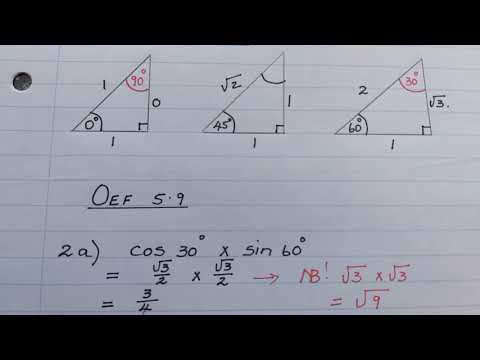 1 90° 0 0° 1
√2 1 45° 1
2 30° √3. 60° 1
OEF 5.9
2a) cos 30° x sin 60°
= √3/2 x √3/2 → NB! √3 x √3
= 3/4 = √9